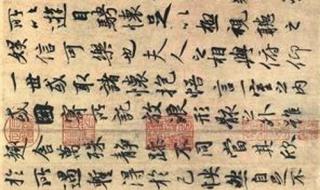 所以遊目騁懷足以極視聽之
娛信可樂也夫人之相與俯仰
一世或取諸懷抱悟言一室之內
或因寄所託放浪形骸之外雖
趣舍萬殊靜躁不同當其欣
於所遇暫得於己怏然自足不